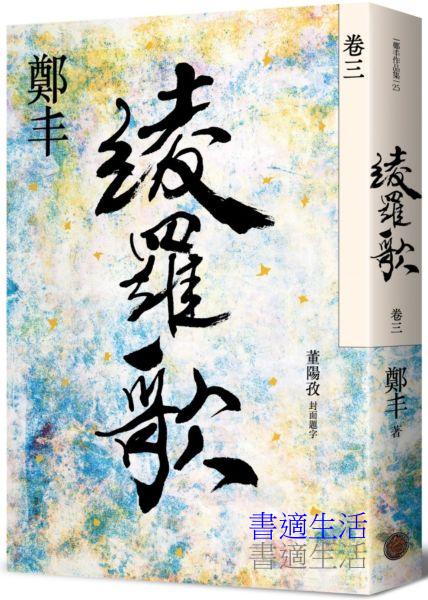 鄭丰
綾羅歌
董陽孜 封面題字
卷三
鄭丰作品集 25
綾羅歌
卷三
鄭丰 著
書適生活
書適生活